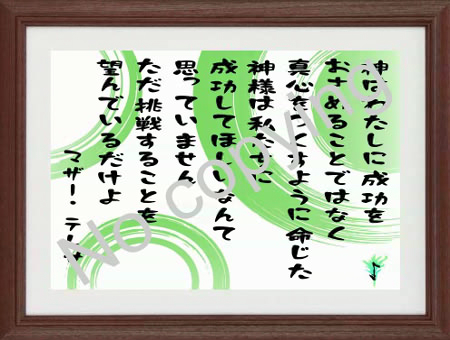 神はわたしに成功を
おさめることではなく
真心をつくすように命じた
神様は私たちに
成功してほしいなんて
思っていません
ただ挑戦することを
望んでいるだけよ
マザー・テレサ
No copying